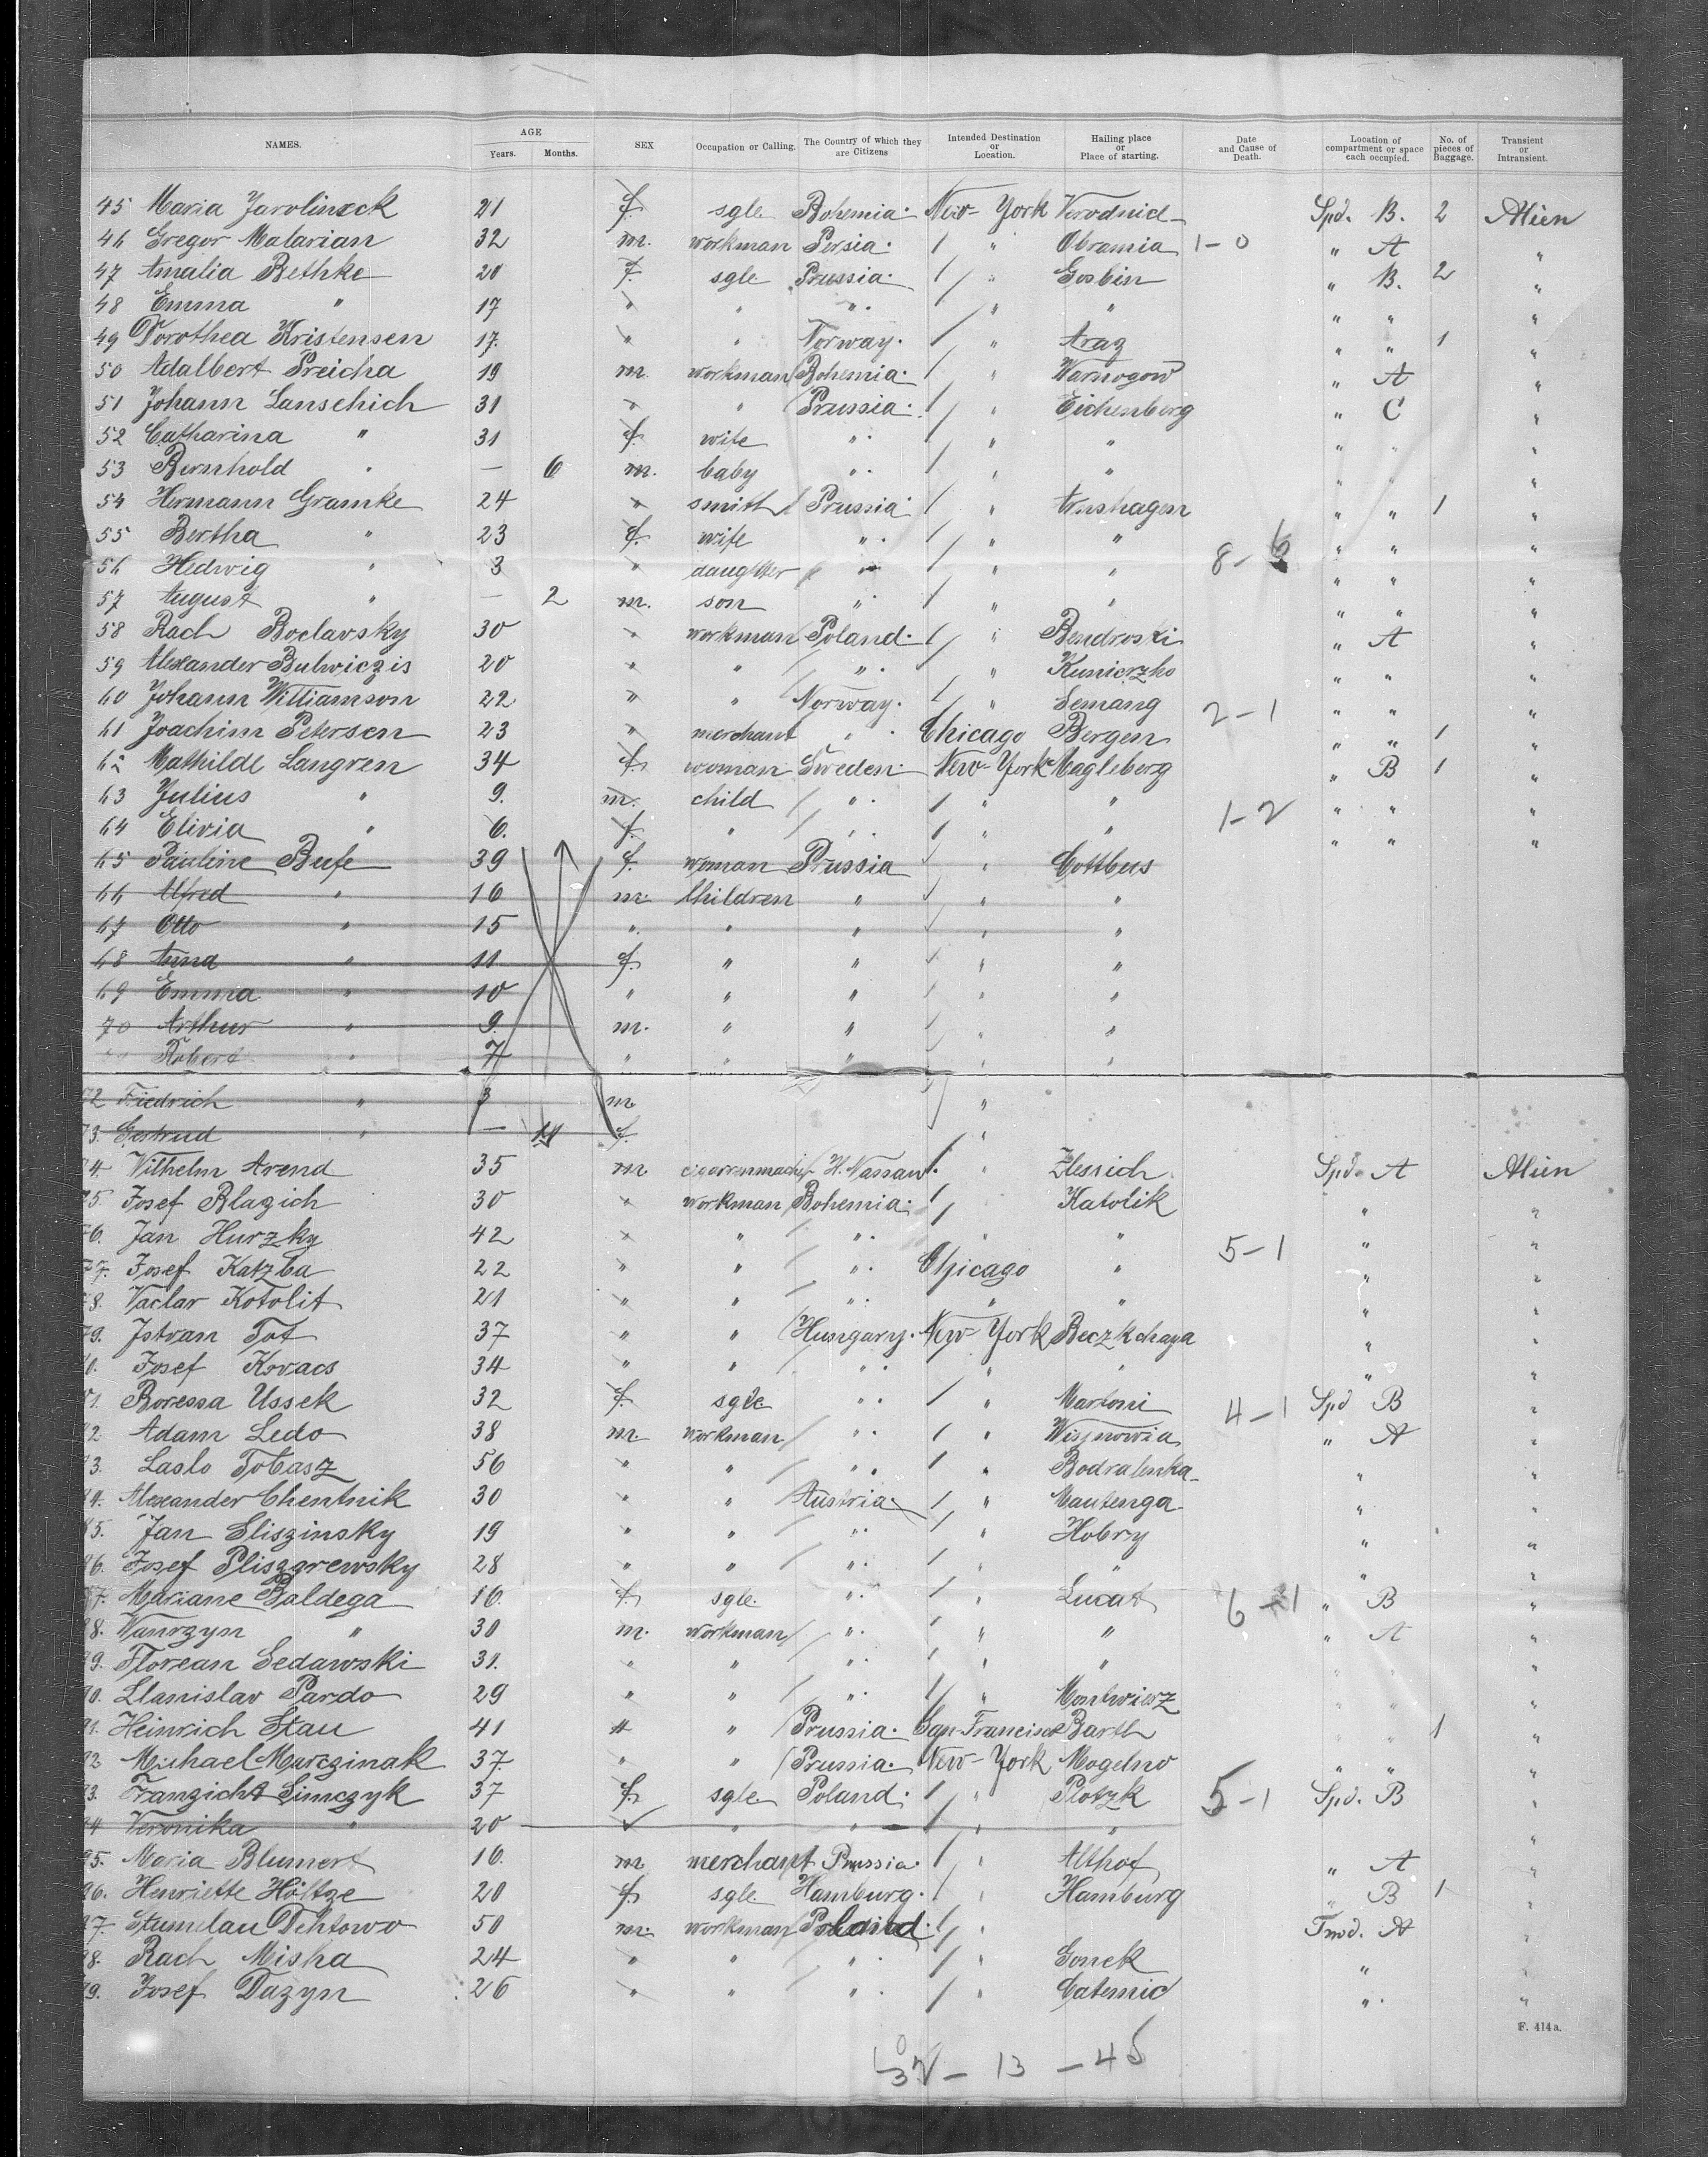 NAMES. AGE Years. Months. SEX Occupation or Calling. The Country of which they are Citizens Intended Destination or Location. Hailing place or Place of starting. Date and Cause of Death. Location of compartment or space each occupied. No. of pieces of Baggage. Transient or Intransient.
45 Maria Jarolineck 21 f. sgle Bohemia. New-York Spd. B. 2 Alien
46 Gregor Malarian 32 m. workman Persia. / " Obramia 1-0 " A "
47 Amalia Bethke 20 f. sgle Prussia. / " Gosbin " B. 2 "
48 Emma " 17 " " " / " " " " "
49 Dorothea Kristensen 17. " " Norway. / " Araz " " 1 "
50 Adalbert Preicha 19 m. workman Bohemia. / " Warnogow " A "
51 Johann Lanschich 31 " " Prussia. / " Eichenberg " C "
52 Catharina " 31 f. wife " / " " " " "
53 Bernhold " — 6 m. baby " / " " " " "
54 Hermann Gramke 24 " smith Prussia. / " Arnshagen " " 1 "
55 Bertha " 23 f. wife " / " " " " "
56 Hedwig " 3 " daughter " / " " 8- " " "
57 August " — 2 m. son " / " " " " "
58 Rach Boclavsky 30 " workman Poland. / " Bendroski " A "
59 Alexander Bulwiczis 20 " " " / " Kunierzko " " "
60 Johann Williamson 22 " " Norway. / " Semang 2-1 " " "
61 Joachim Petersen 23 " merchant " Chicago Bergen " " 1 "
62 Mathilde Langren 34 f. woman Sweden. New-York Magleberg " B 1 "
63 Julius " 9. m. child " / " " 1-2 " " "
64 Elivia " 6. f. " " / " " " " "
65 Pauline Bufe 39 f. woman Prussia / " Cottbus
66 Alfred " 16 m. Children " / " "
67 Otto " 15 " " " / " "
68 Anna " 11 f. " " / " "
69 Emma " 10 " " " / " "
70 Arthur " 9. m. " " / " "
Robert " 7 " " " / " "
72 Friedrich " 3 m / "
73. Gertrud " — 11 f. "
74 Wilhelm Arend 35 m cigarrenmacher H. Nassau. / " Hessich Spd. A Alien
75. Josef Blazich 30 " workman Bohemia. / " Katolik " "
76. Jan Hurzky 42 " " " " " 5-1 " "
77. Josef Katzba 22 " " " Chicago " " "
78. Vaclav Kotolit 21 " " " " " " "
79. Istvan Tot 37 " " Hungary. New-York Beczkchaya " "
80. Josef Kovacs 34 " " " / " " " "
81. Boressa Ussek 32 f. sgle " / " Martoni 4-1 Spd B "
82 Adam Ledo 38 m workman " / " Wisjnowia " A "
83. Laslo Tobasz 56 " " " / " Bodralenka " "
84. Alexander Chentnik 30 " " Austria / " Mautenga " "
85. Jan Sliszinsky 19 " " " / " Hobry " "
86. Josef Pliszgrewsky 28 " " " / " " " "
87. Mariane Baldega 16. f. sgle. " / " Lucat 6-1 " B "
88. Vawrzyn " 30 m. workman " / " " " A "
89. Florean Sedawski 31. " " " / " " " " "
90. Llanislav Pardo 29 " " " / " Montwierz " " "
91. Heinrich Stau 41 " " Prussia. San Francisco Barth " " 1 "
92 Michael Marczinak 37. " " Prussia. New-York Mogelno " " "
93. Franzicht Simczyk 37 f. sgle. Poland. / " Plotzk 5-1 Spd. B "
94 Veronika " 20 " " / " " "
95. Maria Blumert 16. m merchant Prussia. / " Althof " A "
96. Henriette Höltze 20 f. sgle. Hamburg. / " Hamburg " B 1 "
97. Stumelau Dehtowo 50 m. workman Poland. / " Twd. A "
98. Rach Misha 24 " " " / " Gonek " "
99. Josef Dazyn 26 " " " / " Caternic " "
F. 414a.
32 - 13 - 45